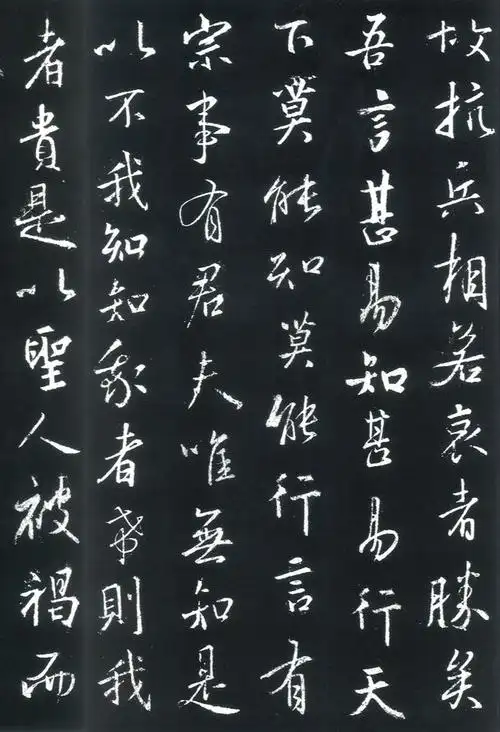 故抗兵相若哀者勝矣
吾言甚易知甚易行天
下莫能知莫能行言有
宗事有君夫唯無知是
以不我知知我者希則我
者貴是以聖人被褐而